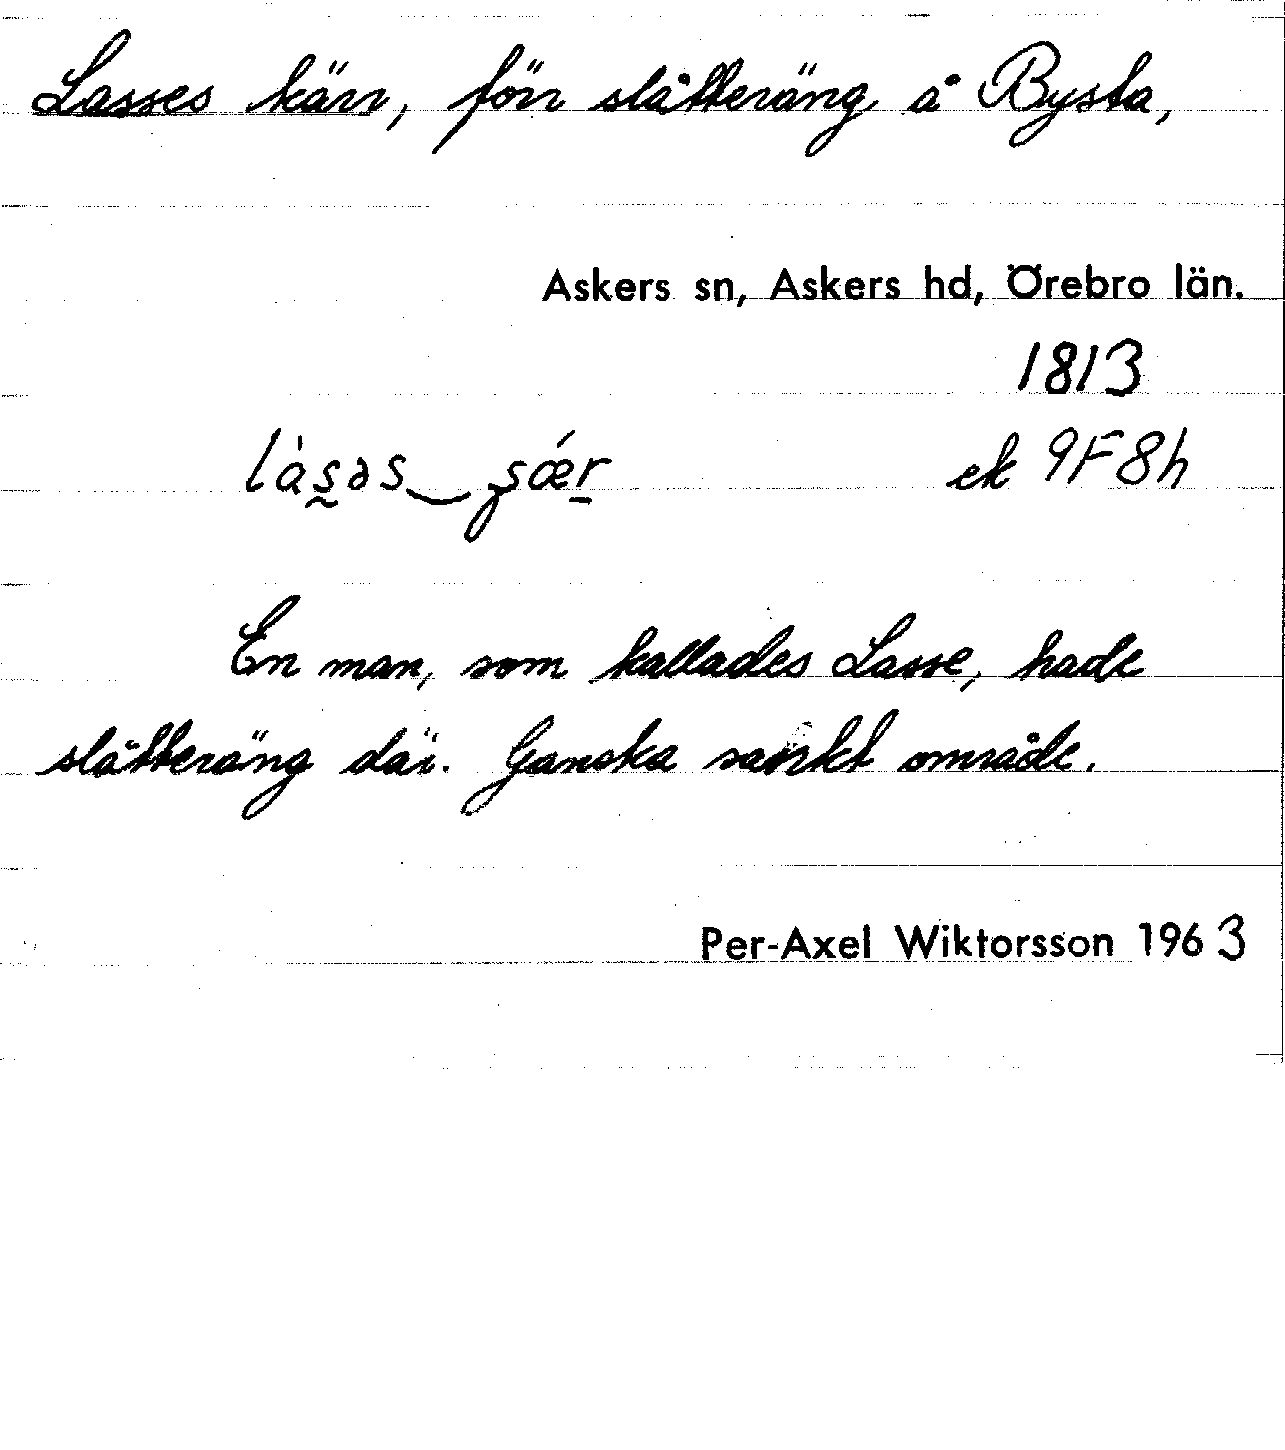 Lasses kärr, förr slåtteräng å Bysta,
Askers sn, Askers hd, Örebro län.
1813
ek 9F8h
En man, som kallades Lasse, hade
slåtteräng där. Ganska sankt område.
Per-Axel Wiktorsson 1963